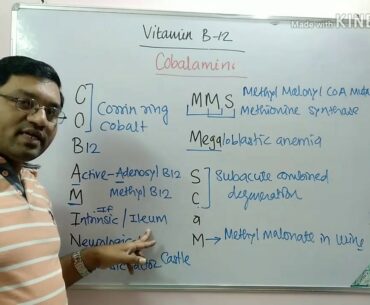 Made with KINE
Vitamin B-12
Cobalamin
C
O
Corrin ring
cobalt
B12
Active-Adenosyl B12
M Methyl B12
IF
Intrinsic / Ileum
Neurologic
Castle
MMS
Methyl Malonyl CoA Muta
Methionine synthase
Megaloblastic anemia
S
C
Subacute combined
degeneration
a
M → Methyl malonate in Urine